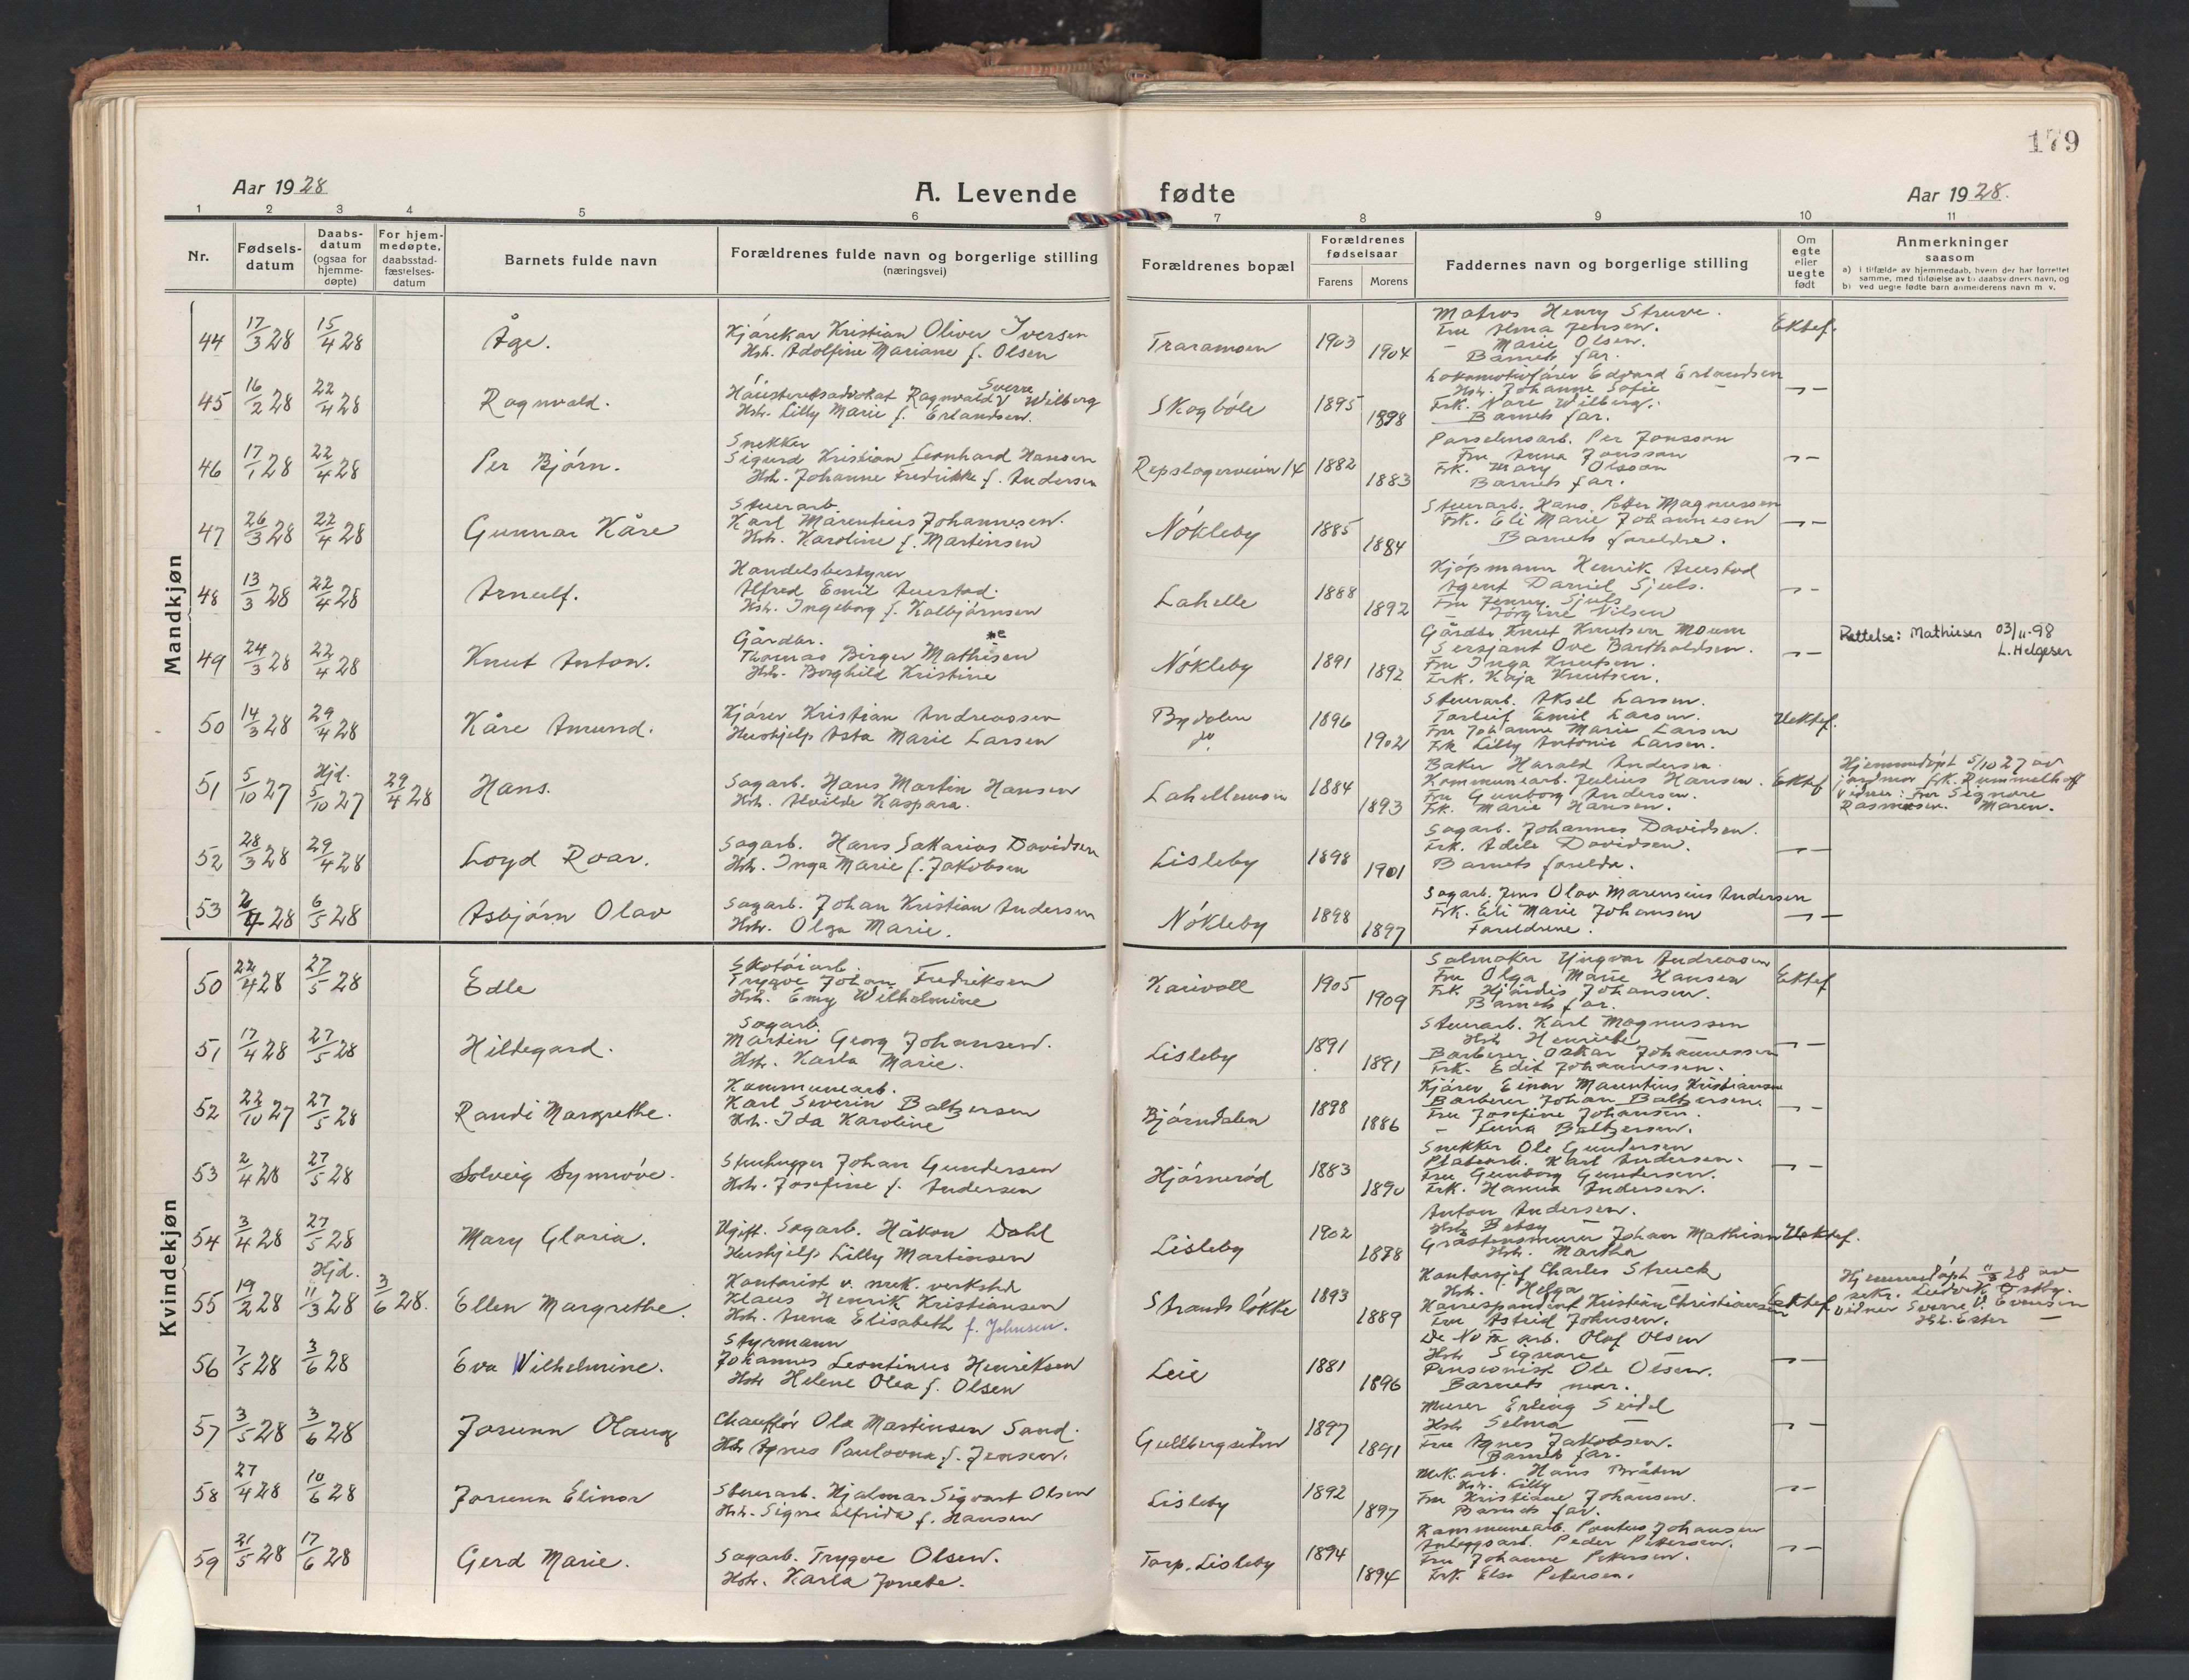 179
Aar 1928
A. Levende fødte
Aar 1928.
1 2 3 4 5 6 7 8 9 10 11
Nr.
Fødsels-
datum
Daabs-
datum
(ogsaa for
hjemme-
døpte)
For hjem-
medøpte,
daabsstad-
fæstelses-
datum
Barnets fulde navn
Forældrenes fulde navn og borgerlige stilling
(næringsvei)
Forældrenes bopæl
Forældrenes
fødselsaar
Farens Morens
Faddernes navn og borgerlige stilling
Om
egte
eller
uegte
født
Anmerkninger
saasom
a) i tilfælde av hjemmedaab, hvem der har forrettet
samme, med tilføielse av to daabsvidners navn, og
b) ved uegte fødte barn anmelderens navn m. v.
Mandkjøn
44 17/3 28 15/4 28 Åge.
Kjørekar Kristian Oliver Iversen
Hstr. Adolfine Mariane f. Olsen
Traramoen 1903 1904
Matros Henry Struve.
Fru Alma Jensen.
– Marie Olsen.
Barnets far.
Ektef.
45 16/2 28 22/4 28 Ragnvald.
Høiesteretsadvokat Ragnvald Sverre Wilberg
Hstr. Lilly Marie f. Erlandsen.
Skogbøle 1895 1898
Lokomotivfører Edvard Erlandsen
Hstr. Johanne Sofie –
Frk. Nare Wilberg.
Barnets far.
— " —
46 17/1 28 22/4 28 Per Bjørn.
Snekker
Sigurd Kristian Leonhard Hansen
Hstr. Johanne Fredrikke f. Andersen
Repslagerveien 14 1882 1883
Porselensarb. Per Jonsson
Fru Anna Jonsson
Frk. Mary Olsson
Barnets far.
— " —
47 26/3 28 22/4 28 Gunnar Kåre
Stuerarb.
Karl Marentius Johannesen.
Hstr. Karoline f. Martinsen
Nøkleby 1885 1884
Stuerarb. Hans Petter Magnussen
Frk. Eli Marie Johannesen
Barnets foreldre.
— " —
48 13/3 28 22/4 28 Arnulf.
Handelsbestyrer
Alfred Emil Auestad.
Hstr. Ingeborg f. Kolbjørnsen
Lahelle 1888 1892
Kjøpmann Henrik Auestad
Agent Daniel Sjuls.
Fru Jenny Sjuls
– Jørgine Nilsen
— " —
49 24/3 28 22/4 28 Knut Anton.
Gårdbr.
Thomas Birger Mathisen
Hstr. Borghild Kristine
Nøkleby 1891 1892
Gårdbr. Knut Knutsen Moum
Sersjant Ove Bartholdsen.
Fru Inga Knutsen.
Frk. Kaja Knutsen.
— " —
Rettelse: Mathiesen 03/11-98
L. Helgesen
50 14/3 28 29/4 28 Kåre Amund.
Kjører Kristian Andreassen
Hushjelp Asta Marie Larsen
Bydalen
do. 1896 1902
Stuerarb. Aksel Larsen.
Torleif Emil Larsen.
Fru Johanne Marie Larsen
Frk Lilly Antonie Larsen.
Uektef.
51 5/10 27 Hjd. 5/10 27 29/4 28 Hans.
Sagarb. Hans Martin Hansen
Hstr. Alvilde Kaspara.
Lahellemoen 1884 1893
Baker Harald Andersen
Kommunearb. Julius Hansen.
Fru Gunborg Andersen.
Frk. Marie Hansen.
Ektef
Hjemmedøpt 5/10 27 av
jordmor frk. Rummelhoff
Vidner: Fru Signore
Rasmussen. Maren.
52 28/3 28 29/4 28 Loyd Roar.
Sagarb. Hans Sakarias Davidsen
Hstr. Inga Marie f. Jakobsen
Lisleby 1898 1901
Sagarb. Johannes Davidsen.
Frk. Adele Davidsen.
Barnets foreldre.
— " —
53 2/4 28 6/5 28 Asbjørn Olav
Sagarb. Johan Kristian Andersen
Hstr. Olga Marie.
Nøkleby 1898 1897
Sagarb. Jens Olav Marensius Andersen
Frk. Eli Marie Johansen
Foreldrene.
— " —
Kvindekjøn
50 22/4 28 27/5 28 Edle
Skotøiarb.
Trygve Johan Fredriksen
Hstr. Emy Wilhelmine
Karivoll 1905 1909
Salmaker Yngvar Andreassen
Fru Olga Marie Hansen
Frk. Hjørdis Johansen.
Barnets far.
Ektef
51 17/4 28 27/5 28 Hildegard.
Sagarb.
Martin Georg Johansen.
Hstr. Karla Marie.
Lisleby 1891 1891
Stuerarb. Karl Magnussen
Hstr Henriette –
Barberer Oskar Johannessen
Frk. Edit Johannessen.
— " —
52 22/10 27 27/5 28 Randi Margrethe.
Kommunearb.
Karl Severin Baltzersen
Hstr. Ida Karoline
Bjørndalen 1898 1886
Kjører Einar Marentius Kristiansen
Barberer Johan Baltzersen.
Fru Josefine Johansen.
– Luna Baltzersen.
— " —
53 2/4 28 27/5 28 Solveig Synnøve.
Stenhugger Johan Gundersen
Hstr. Josefine f. Andersen
Hjørnerød 1883 1890
Snekker Ole Gundersen
Platearb. Karl Andersen.
Fru Gunborg Gundersen.
Frk. Hanna Andersen.
— " —
54 3/4 28 27/5 28 Mary Gloria.
Ugift. Sagarb. Håkon Dahl
Hushjelp Lilly Martinsen
Lisleby 1902 1898
Anton Andersen.
Hstr Betsy –
Gråstensmurer Johan Mathisen
Hstr. Martha
Uektef.
55 19/2 28 Hjd. 11/3 28 3/6 28. Ellen Margrethe.
Kontorist v. mek. verksted
Klaus Henrik Kristiansen
Hstr. Anna Elisabeth f. Johnsen.
Strandsløkke 1893 1889
Kontorsjef Charles Struck
Hstr. Helga –
Korrespondent Kristian Christiansen
Fru Astrid Johnsen.
Ektef
Hjemmedøpt 11/3 28 av
sekr. Ludvik Østby.
Vidner Sverre V. Evensen
Hst. Ester —
56 7/5 28 3/6 28 Eva Wilhelmine.
Styrmann
Johannes Leontinus Henriksen
Hstr Helene Olea f. Olsen
Leie 1881 1896
De No Fa arb. Olaf Olsen
Hstr Signore –
Pensionist Ole Olsen.
Barnets mor.
— " —
57 3/5 28 3/6 28 Jorunn Olaug
Chauffør Ole Martinsen Sand.
Hstr Agnes Paulovna f. Jensen.
Gullbergseten 1897 1891
Murer Erling Seidel
Hstr Selma –
Fru Agnes Jakobsen.
Barnets far.
— " —
58 27/4 28 10/6 28 Jorunn Elinor
Stuerarb. Hjalmar Sigvart Olsen
Hstr. Signe Elfrida f. Hansen
Lisleby 1892 1897
Mek. arb. Hans Bråten
Hstr. Lilly –
Fru Kristiane Johansen.
Barnets far.
— " —
59 21/5 28 17/6 28 Gerd Marie.
Sagarb. Trygve Olsen.
Hstr. Karla Jonette.
Torp. Lisleby 1894 1894
Kommunearb. Pontus Johansen
Anleggsarb. Peder Petersen.
Fru Johanne Petersen.
Frk. Elsa Petersen.
— " —